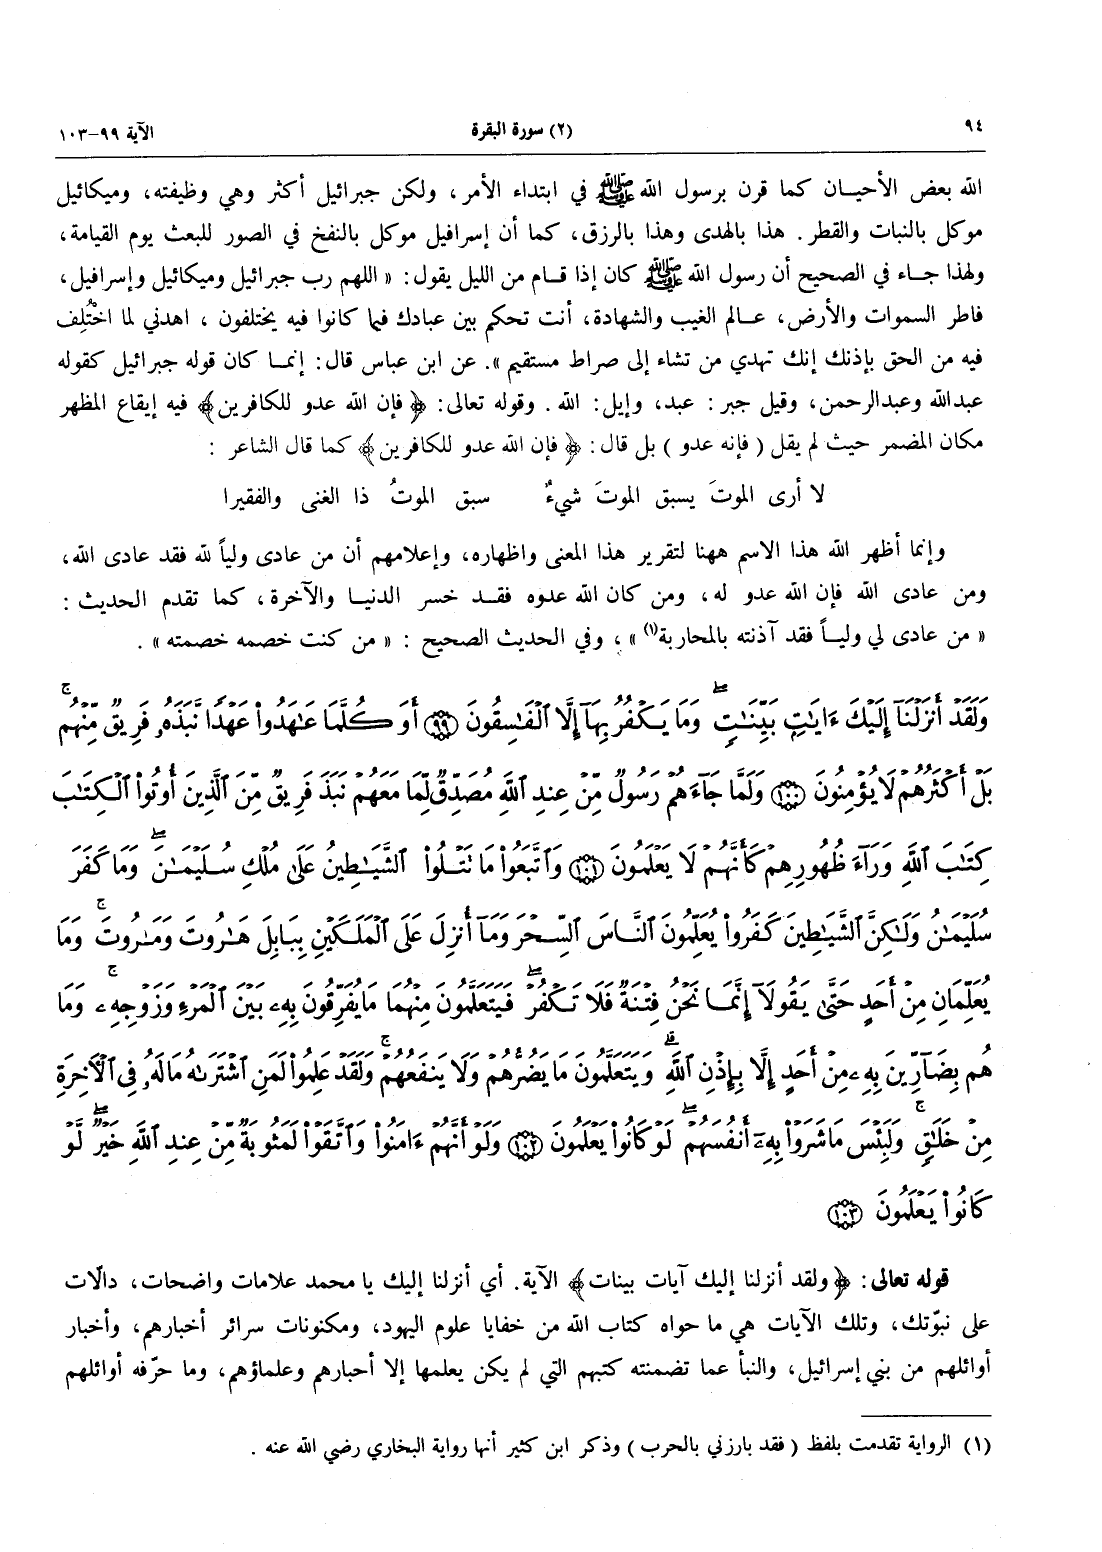 ٩٤ (٢) سورة البقرة الآية ٩٩-١٠٣
الله بعض الأحيان كما قرن برسول الله ﷺ في ابتداء الأمر، ولكن جبرائيل أكثر وهي وظيفته، وميكائيل
موكل بالنبات والقطر. هذا بالهدى وهذا بالرزق، كما أن إسرافيل موكل بالنفخ في الصور للبعث يوم القيامة،
ولهذا جاء في الصحيح أن رسول الله ﷺ كان إذا قام من الليل يقول: « اللهم رب جبرائيل وميكائيل وإسرافيل،
فاطر السموات والأرض، عالم الغيب والشهادة، أنت تحكم بين عبادك فيما كانوا فيه يختلفون ، اهدني لما اخْتُلِف
فيه من الحق بإذنك إنك تهدي من تشاء إلى صراط مستقيم ». عن ابن عباس قال: إنما كان قوله جبرائيل كقوله
عبدالله وعبدالرحمن، وقيل جبر : عبد، وإيل: الله . وقوله تعالى: ﴿ فإن الله عدو للكافرين﴾ فيه إيقاع المظهر
مكان المضمر حيث لم يقل ( فإنه عدو ) بل قال: ﴿ فإن الله عدو للكافرين﴾ كما قال الشاعر :
لا أرى الموتَ يسبق الموتَ شيءٌ سبق الموتُ ذا الغنى والفقيرا
وإنما أظهر الله هذا الاسم ههنا لتقرير هذا المعنى واظهاره، وإعلامهم أن من عادى ولياً لله فقد عادى الله،
ومن عادى الله فإن الله عدو له، ومن كان الله عدوه فقد خسر الدنيا والآخرة، كما تقدم الحديث :
« من عادى لي ولياً فقد آذنته بالمحاربة(١) » ، وفي الحديث الصحيح : « من كنت خصمه خصمته » .
وَلَقَدْ أَنزَلْنَآ إِلَيْكَ ءَايَٰتٍۭ بَيِّنَٰتٍۖ وَمَا يَكْفُرُ بِهَآ إِلَّا ٱلْفَٰسِقُونَ ٩٩ أَوَكُلَّمَا عَٰهَدُوا۟ عَهْدًا نَّبَذَهُۥ فَرِيقٌ مِّنْهُمۚ
بَلْ أَكْثَرُهُمْ لَا يُؤْمِنُونَ ١٠٠ وَلَمَّا جَآءَهُمْ رَسُولٌ مِّنْ عِندِ ٱللَّهِ مُصَدِّقٌ لِّمَا مَعَهُمْ نَبَذَ فَرِيقٌ مِّنَ ٱلَّذِينَ أُوتُوا۟ ٱلْكِتَٰبَ
كِتَٰبَ ٱللَّهِ وَرَآءَ ظُهُورِهِمْ كَأَنَّهُمْ لَا يَعْلَمُونَ ١٠١ وَٱتَّبَعُوا۟ مَا تَتْلُوا۟ ٱلشَّيَٰطِينُ عَلَىٰ مُلْكِ سُلَيْمَٰنَۖ وَمَا كَفَرَ
سُلَيْمَٰنُ وَلَٰكِنَّ ٱلشَّيَٰطِينَ كَفَرُوا۟ يُعَلِّمُونَ ٱلنَّاسَ ٱلسِّحْرَ وَمَآ أُنزِلَ عَلَى ٱلْمَلَكَيْنِ بِبَابِلَ هَٰرُوتَ وَمَٰرُوتَۚ وَمَا
يُعَلِّمَانِ مِنْ أَحَدٍ حَتَّىٰ يَقُولَآ إِنَّمَا نَحْنُ فِتْنَةٌ فَلَا تَكْفُرْۖ فَيَتَعَلَّمُونَ مِنْهُمَا مَا يُفَرِّقُونَ بِهِۦ بَيْنَ ٱلْمَرْءِ وَزَوْجِهِۦۚ وَمَا
هُم بِضَآرِّينَ بِهِۦ مِنْ أَحَدٍ إِلَّا بِإِذْنِ ٱللَّهِۗ وَيَتَعَلَّمُونَ مَا يَضُرُّهُمْ وَلَا يَنفَعُهُمْۚ وَلَقَدْ عَلِمُوا۟ لَمَنِ ٱشْتَرَىٰهُ مَا لَهُۥ فِى ٱلْءَاخِرَةِ
مِنْ خَلَٰقٍۚ وَلَبِئْسَ مَا شَرَوْا۟ بِهِۦٓ أَنفُسَهُمْۖ لَوْ كَانُوا۟ يَعْلَمُونَ ١٠٢ وَلَوْ أَنَّهُمْ ءَامَنُوا۟ وَٱتَّقَوْا۟ لَمَثُوبَةٌ مِّنْ عِندِ ٱللَّهِ خَيْرٌۖ لَّوْ
كَانُوا۟ يَعْلَمُونَ ١٠٣
قوله تعالى: ﴿ولقد أنزلنا إليك آيات بينات﴾ الآية. أي أنزلنا إليك يا محمد علامات واضحات، دالّات
على نبوّتك، وتلك الآيات هي ما حواه كتاب الله من خفايا علوم اليهود، ومكنونات سرائر أخبارهم، وأخبار
أوائلهم من بني إسرائيل، والنبأ عما تضمنته كتبهم التي لم يكن يعلمها إلا أحبارهم وعلماؤهم، وما حرّفه أوائلهم
(١) الرواية تقدمت بلفظ ( فقد بارزني بالحرب ) وذكر ابن كثير أنها رواية البخاري رضي الله عنه .